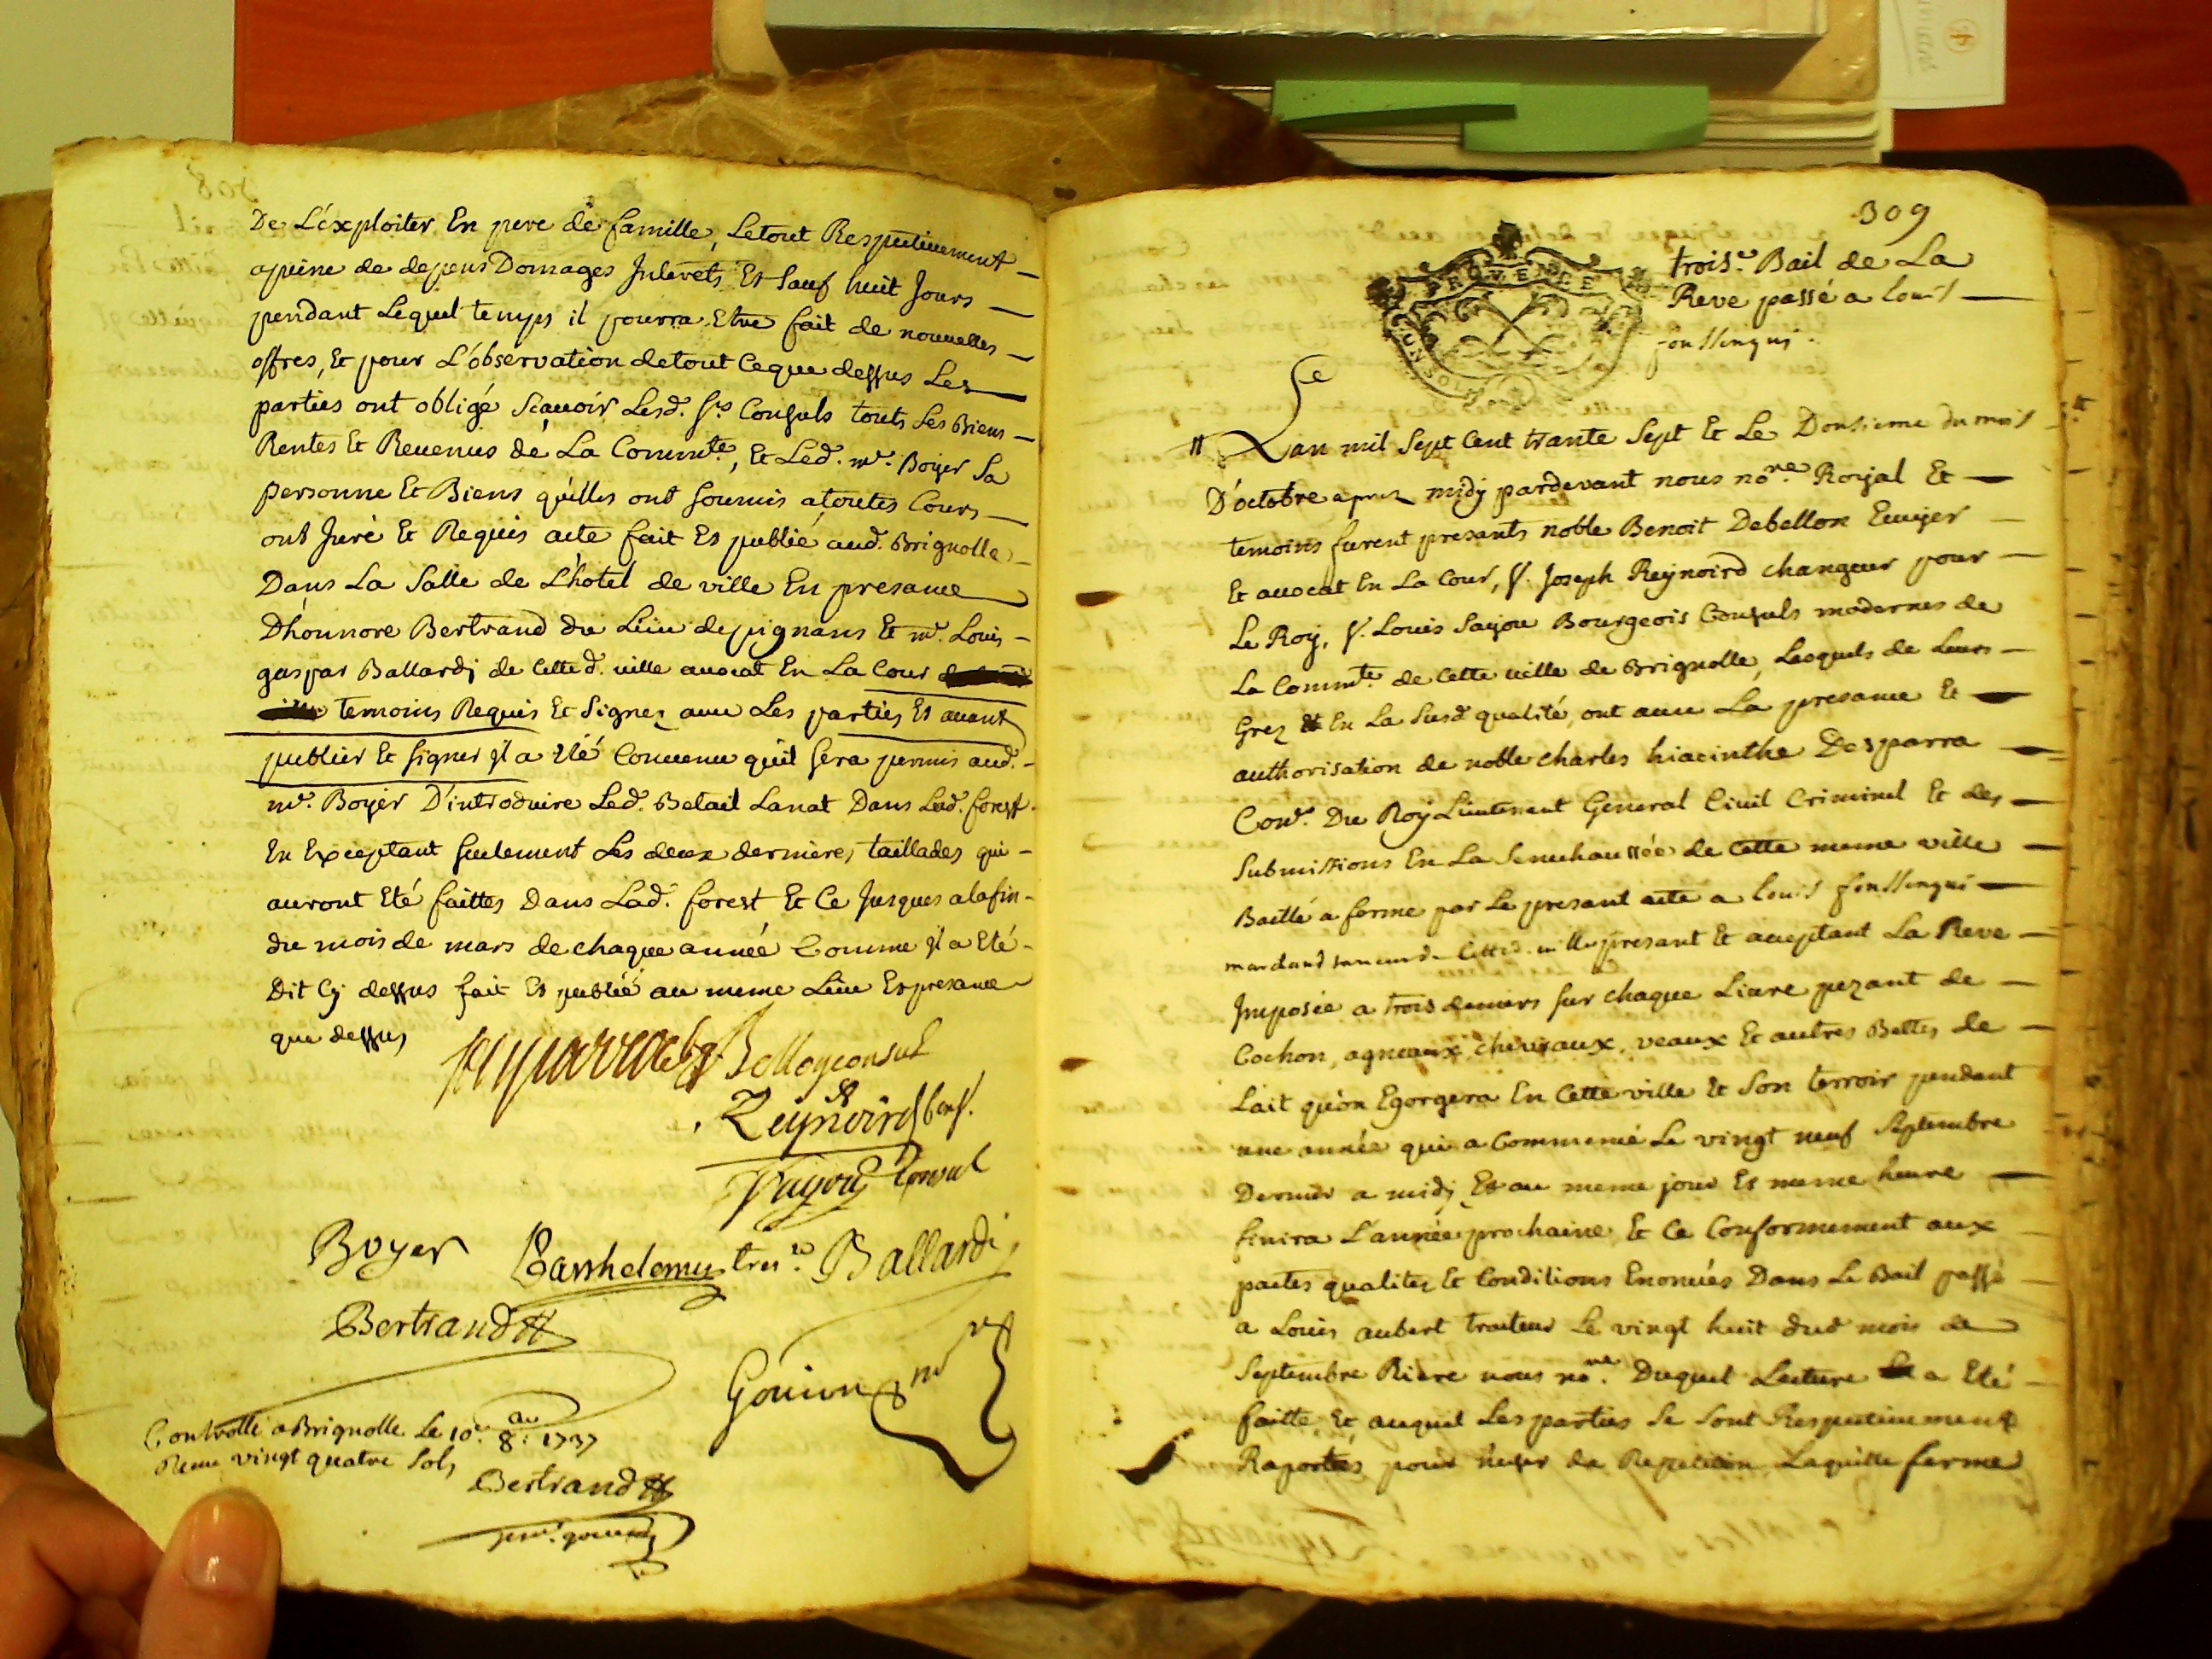 De L'éxploiter En pere de famille, Letout Respectivement
apeine de depens Domages Interets Et Sauf huit Jours
pendant Lequel temps il pourra Etre fait de nouvelles
offres, Et pour L'observation detout Ceque dessus Les
parties ont obligé Scavoir Lesd. Srs Consuls touts Les Biens
Rentes Et Revenus de La Commte, Et Led. mr. Boyer Sa
personne Et Biens qu'illes ont soumis atoutes Cours
ont Juré Et Requis acte fait Et publié aud. Brignolle
Dans La Salle de L'hotel de ville En presance
D'hounnore Bertrand du Lieu depignans Et mr. Louis
gaspar Ballardy de Cette d. ville avocat En La Cour
temoins Requis Et Signez avec Les parties Et avant
publier Et signer il a Eté Convenu qu'il sera permis aud.
mr. Boyer D'introduire Led. Betail Lanat Dans Lad. forest
En Exceptant seulement Les deux dernieres taillades qui
auront Eté faittes Dans Lad. forest Et Ce Jusques alafin
du mois de mars de chaque année Comme il a Eté
Dit Cy dessus fait Et publié au meme Lieu Et presance
que dessus
Bellon consul
Reynoird Cons.
Sayou Consul
Boyer Barthelemy tres.re Ballardi
Bertrand
Gouion nre
Controllé a Brignolle Le 10e 8bre 1737
Receu vingt quatre Sols
Bertrand
309
PROVENCE
trois.e Bail de La
Reve passé a Louis
fonssenqui.
Lan mil Sept Cent trante Sept Et Le Dousieme du mois
D'octobre apres midy pardevant nous no.re Royal Et
temoins furent presants noble Benoit Debellon Ecuyer
Et avocat En La Cour, Sr. Joseph Reynoird changeur pour
Le Roy, Sr. Louis Sayou Bourgeois Consuls modernes de
La Commte. de Cette ville de Brignolle, Lesquels de Leurs
Grez Et En La Susd qualité, ont avec La presance Et
authorisation de noble charles hiacinthe Desparra
Conr. Du Roy Lieutenant General Civil Criminel Et des
Submissions En La Senechaussée de Cette meme ville
Baillé a ferme par Le presant acte a Louis fonssenqui
marchand tanneur de Cette d. ville presant Et acceptant La Reve
Imposée a trois deniers sur chaque Livre pezant de
Cochon, agneaux, chevraux, veaux Et autres Bettes de
Lait qu'on Egorgera En Cette ville Et Son terroir pendant
une année qui a Commencé Le vingt neuf Septembre
Dernier a midy Et au meme jour Et meme heure
finira L'année prochaine Et Ce Conformement aux
pactes qualitez Et Conditions Enoncées Dans Le Bail passé
a Louis aubert traiteur Le vingt huit dud mois de
Septembre Riere nous no.re Duquel Lecture a Eté
faitte, Et auquel Les parties Se Sont Respectivement
Raportées pour n'user de Repetition Laquelle ferme